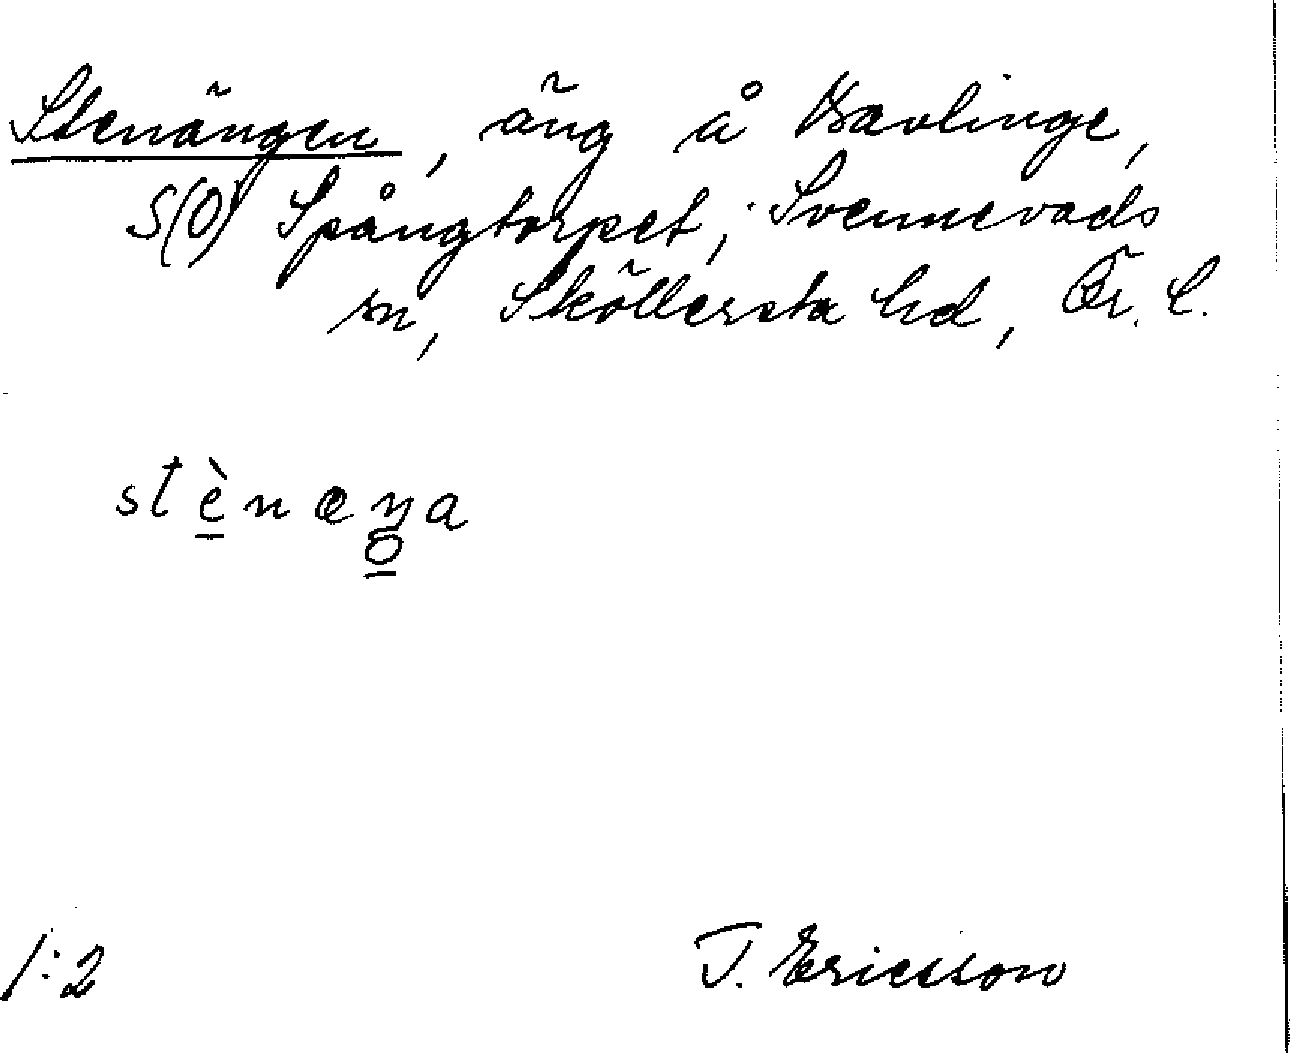 Stenängen, äng å Bavlinge,
S(O) Spångtorpet, Svennevads
sn, Sköllersta hd, Ör. l.
stènæŋa
1:2
J. Ericsson